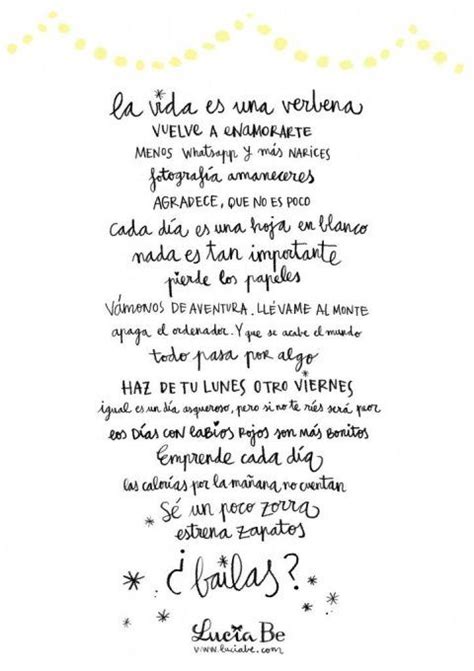 la vida es una verbena
VUELVE A ENAMORARTE
MENOS Whatsapp y más NARICES
fotografía amaneceres
AGRADECE, QUE NO ES POCO
cada día es una hoja en blanco
nada es tan importante
pierde los papeles
VÁMONOS DE AVENTURA. LLÉVAME AL MONTE
apaga el ordenador. Y que se acabe el mundo
todo pasa por algo
HAZ DE TU LUNES OTRO VIERNES
igual es un día asqueroso, pero si no te ríes será peor
LOS DÍAS CON LABIOS ROJOS SON MÁS BONITOS
Emprende cada día
las calorías por la mañana no cuentan
Sé un poco zorra
estrena zapatos
¿bailas?
Lucía Be
www.luciabe.com